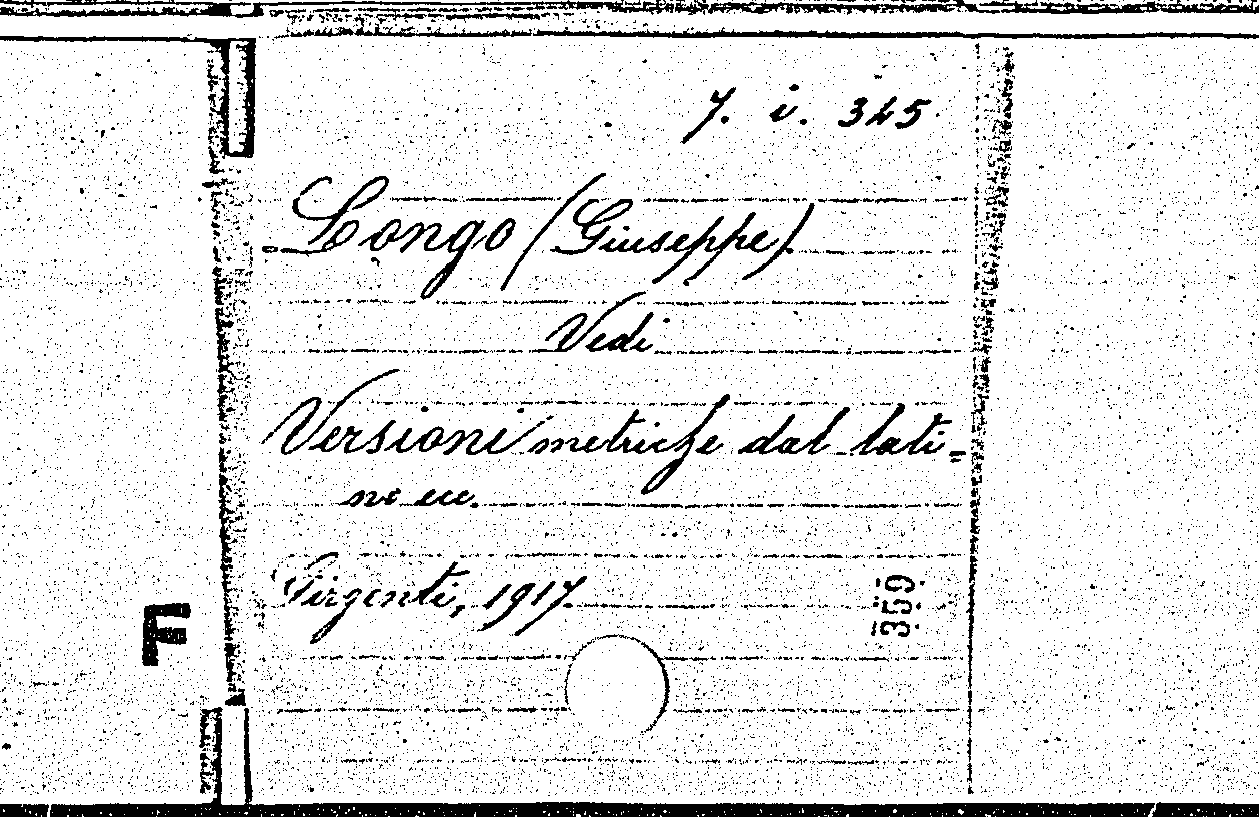 7. i. 345
Longo (Giuseppe)
Vedi
Versioni metriche dal lati=
no ecc.
Girgenti, 1917.
359
F